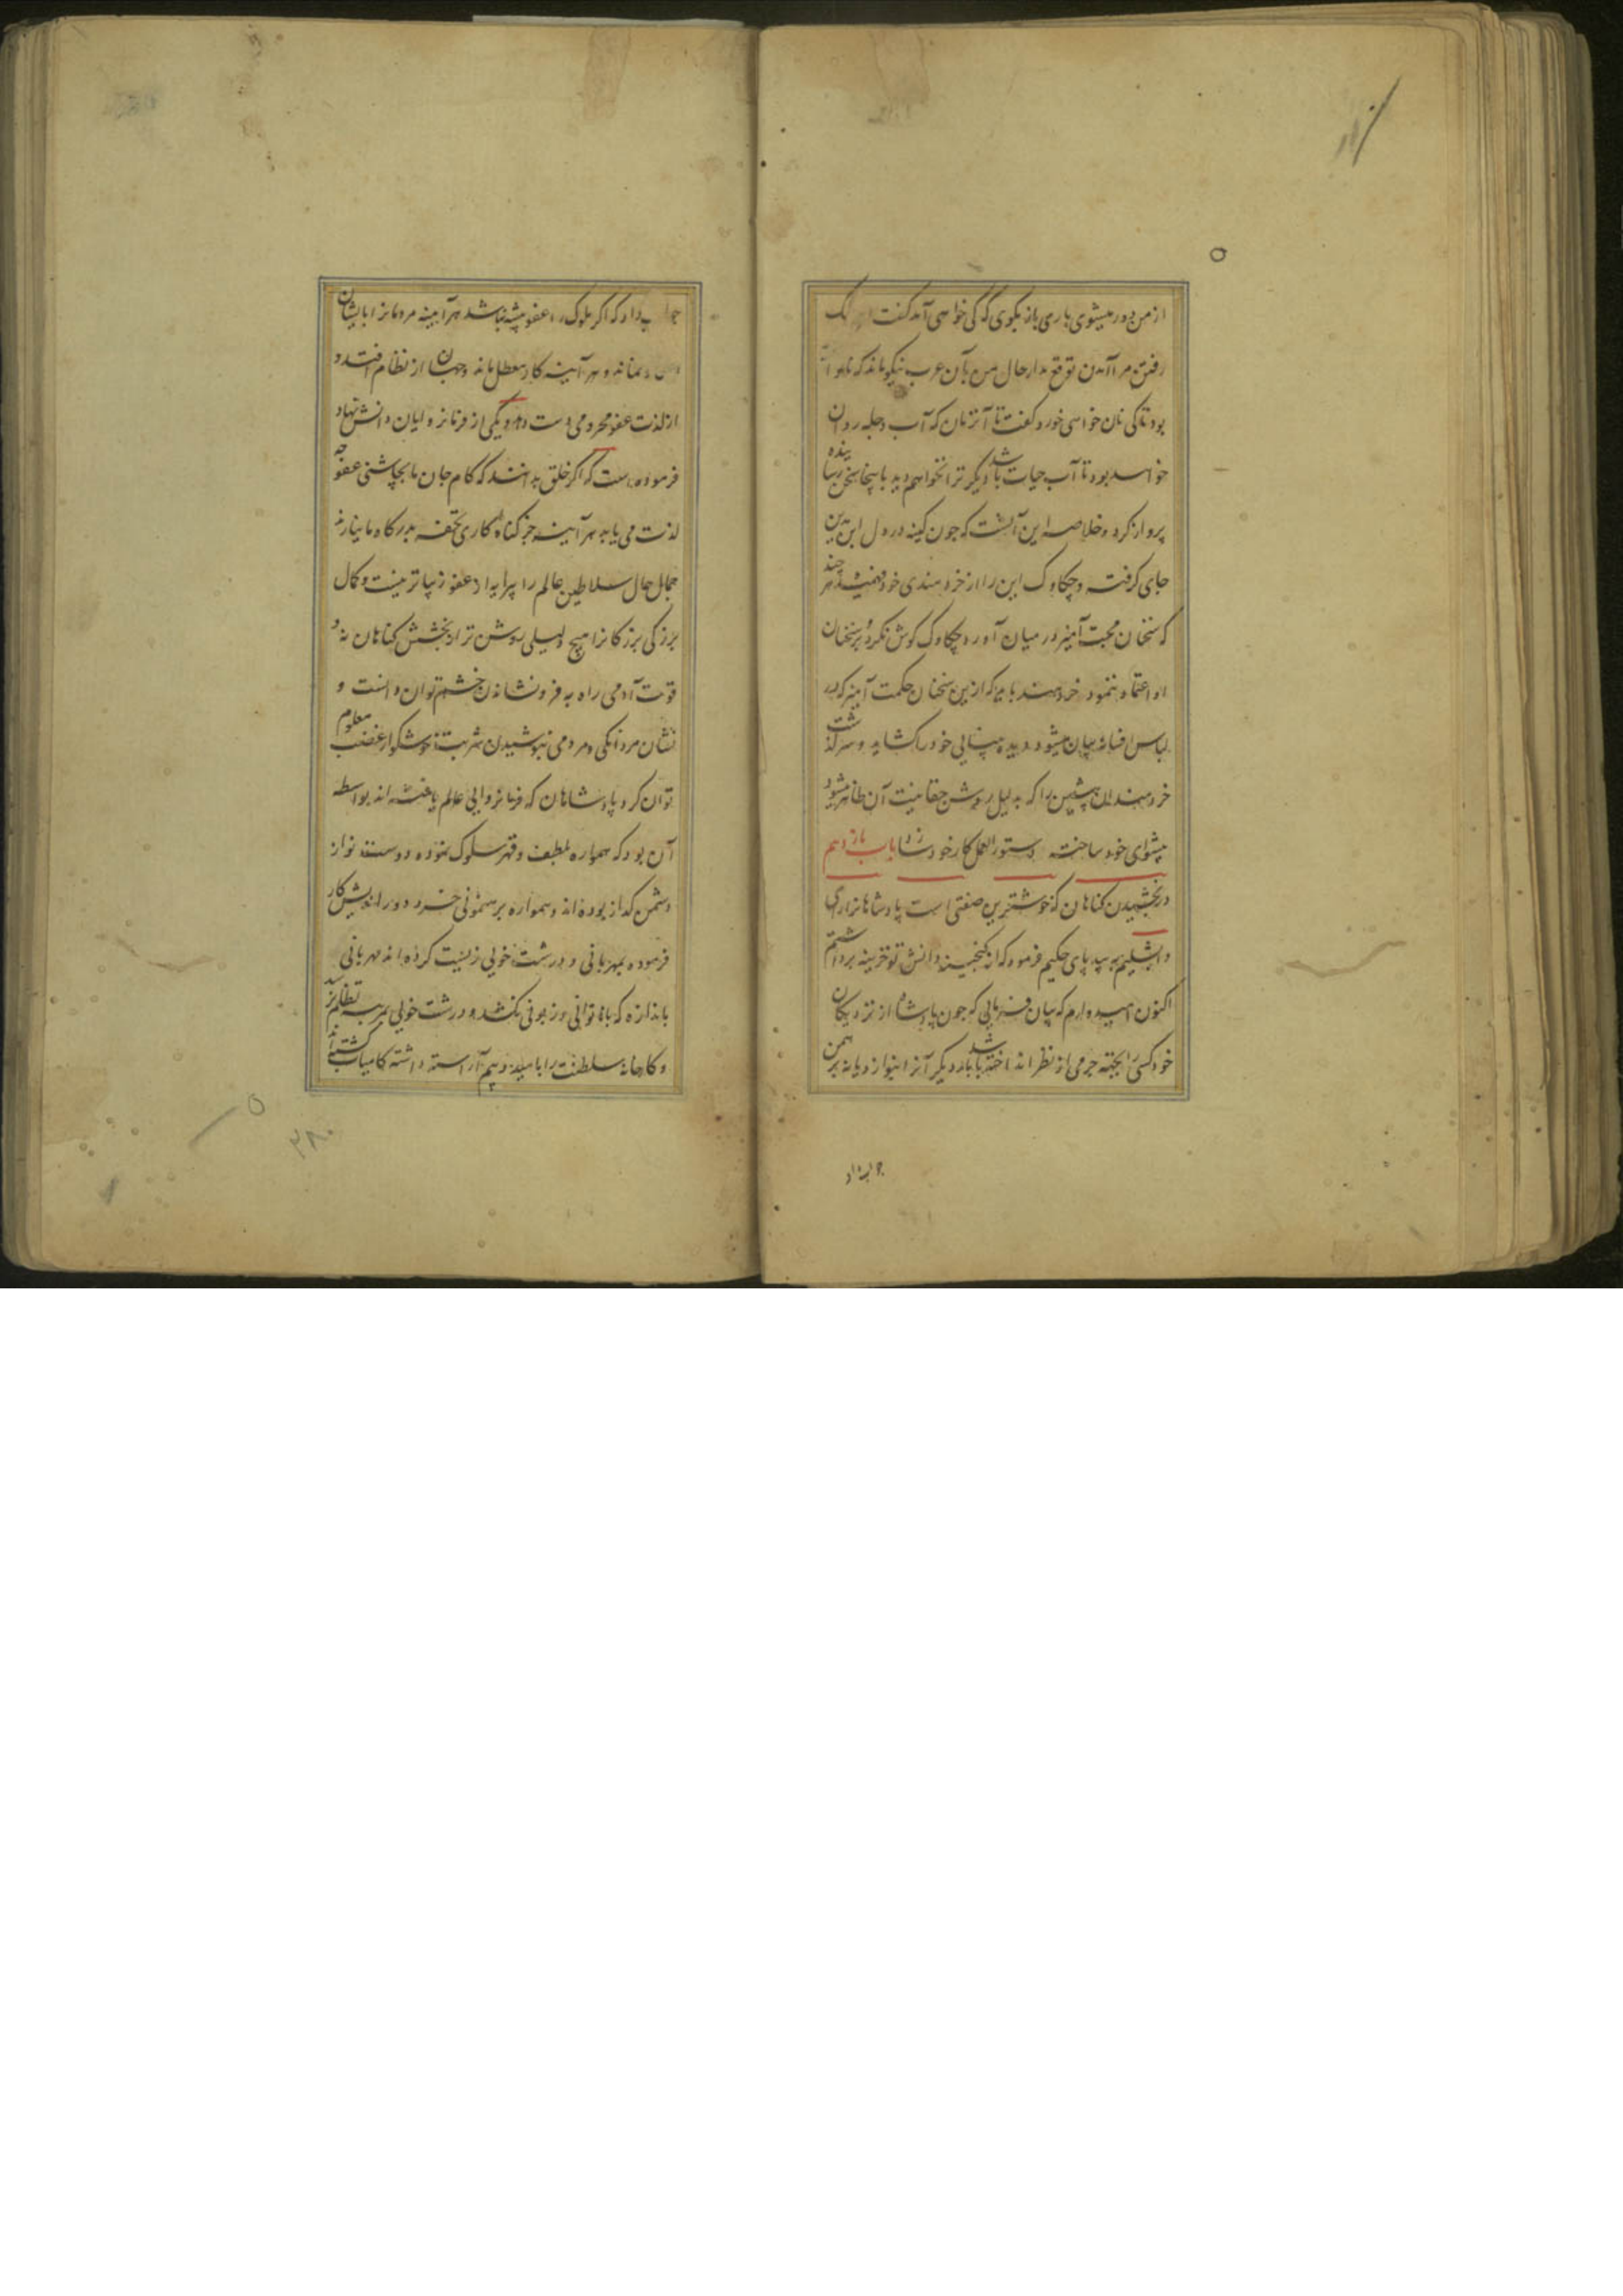 از من دور میشوی باری باز بکوی که کی خواهی آمد کفت
رفتن مرا آمدن توقع مدار حال من بآن عرب نیکو ماند که
بود تا کی نان خواهی خورد کفت تا آنزمان که آب دجله روان
خواهد بود تا آب حیات باشد دیکر ترا نخواهم دید باینجا سخن رسانیده
پرواز کرد و خلاصه این آنست که جون کینه در دل ابن مدین
جای کرفت و چکاوک این را از خردمندی خود فهمید هر چند
که سخنان محبت آمیز در میان آورد چکاوک کوش نکرد و بر سخنان
او اعتماد ننمود خردمند باید که ازین سخنان حکمت آمیز که در
لباس افسانه بیان میشود دیده بینایی خود را کشاید و سرکذشت
خردمندان پیشین را که بدلیل روشن حقانیت آن ظاهر میشود
پیشوای خود ساخته دستور العمل کار خود سازد باب یازدهم
در بخشیدن کناهان که خوشترین صفتی است پادشاهانرا رای
دابشلیم به بیدپای حکیم فرمود که از کنجینه دانش تو خزینه برداشتم
اکنون امیدوارم که بیان فرمایی که جون پادشاه از نزدیکان
خود کسی را بجهته جرمی از نظر انداخته باشد بار دیکر آنرا بنوازد یا نه برهمن
جواب داد
جواب داد که اکر ملوک را عفو پیشه نباشد هر آینه مردمانرا بایشان
نماند و هر آینه کار معطل ماند و جهان از نظام افتد و
از لذت عفو محرومی دست دهد و یکی از فرمانروایان دانش نهاد
فرموده است که اکر خلق بدانند که کام جان ما بچاشنی عفو چه
لذت می یابد هر آینه جز کناه کاری تحفه بدرکاه ما نیارند
جمال حال سلاطین عالم را پیرایه از عفو زیباتر نیست و کمال
بزرکی بزرکانرا هیچ دلیلی روشن تر از بخشش کناهان نه و
قوت آدمی را به فرو نشاندن خشم توان دانست و
نشان مردانکی و مردمی بنوشیدن شربت ناخوشکوار غضب معلوم
توان کرد پادشاهان که فرمانروایی عالم یافته اند بواسطه
آن بود که همواره بلطف و قهر سلوک نموده دوست نواز
دشمن کداز بوده اند و همواره برهنمونی خرد دور اندیش کار
فرموده بمهربانی و درشت خویی زیست کرده اند مهربانی
باندازه که بناتوانی و زبونی نکشد و درشت خویی بمرتبه تظلم نرسد
و کارخانه سلطنت را بامید و بیم آراسته داشته کامیاب کشته اند
۳۸۰